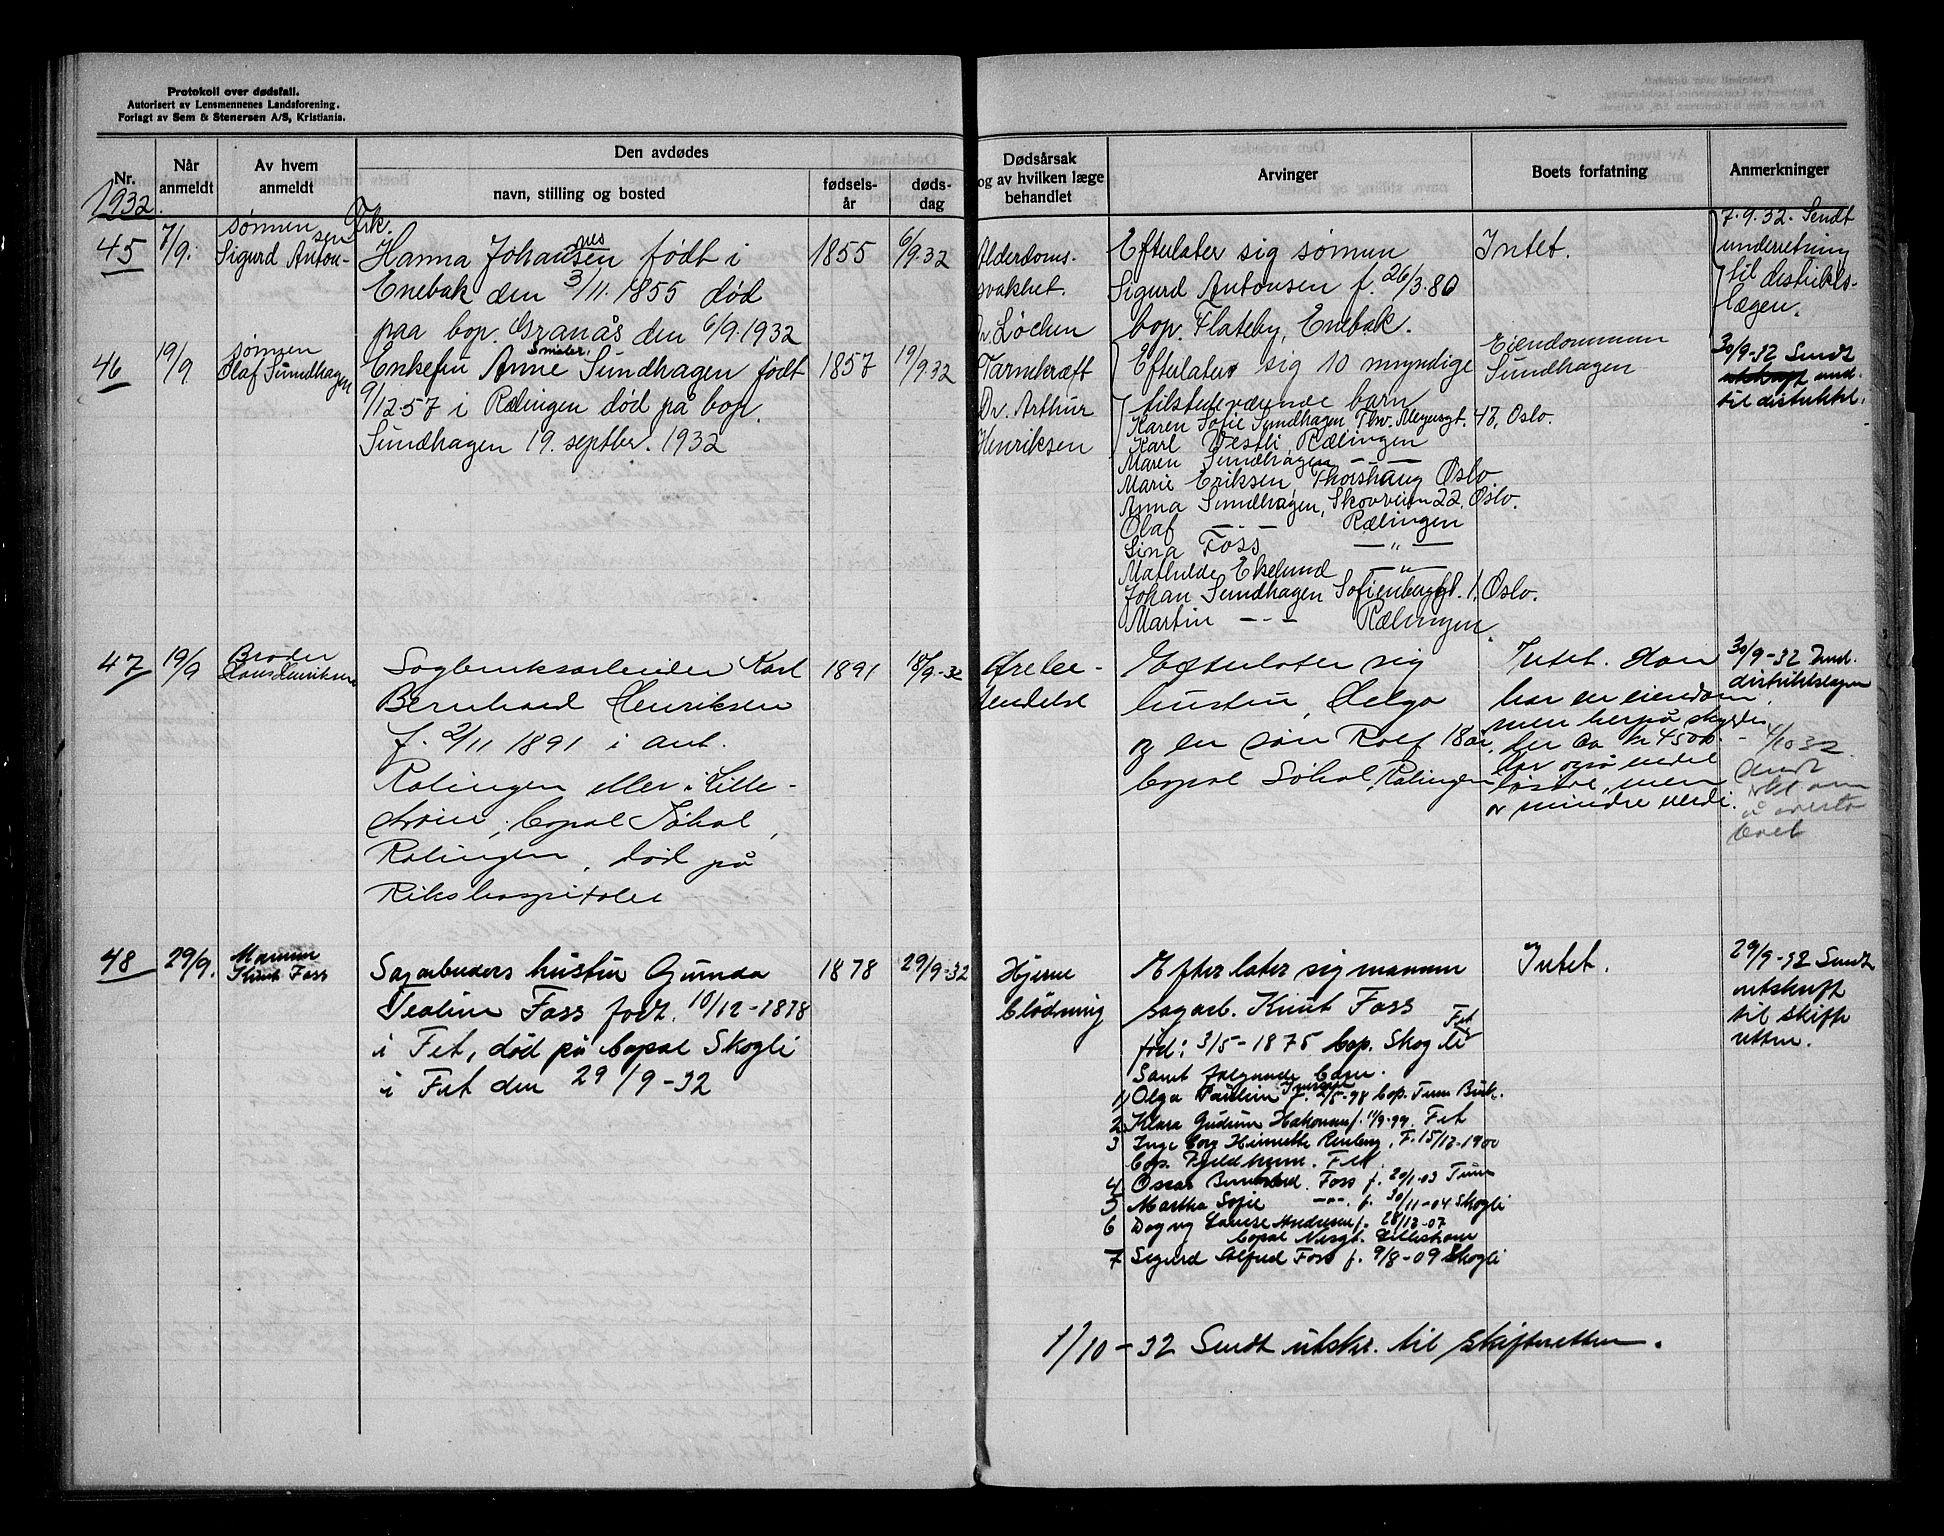 Protokoll over dødsfall.
Autorisert av Lensmennenes Landsforening.
Forlagt av Sem & Stenersen A/S, Kristiania.
Nr.
Når anmeldt
Av hvem anmeldt
Den avdødes
navn, stilling og bosted
fødsels-år
døds-dag
Dødsårsak og av hvilken læge behandlet
Arvinger
Boets forfatning
Anmerkninger
1932.
45
7/9.
sønnen
Sigurd Anton-
sen
Frk.
Hanna Johansen født i
nes
Enebak den 3/11. 1855 død
paa bop. Granås den 6/9.1932
1855
6/9.32
Alderdoms-
svakhet.
Dr. Løchen
Efterlater sig sønnen
Sigurd Antonsen f. 26/3.80
bop. Flateby, Enebak.
Intet.
7.9.32. Sendt
underretning
til distrikts-
lægen.
46
19/9
sønnen
Olaf Sundhagen
Smider
Enkefru Anne Sundhagen født
9/12 57 i Rælingen død på bop.
Sundhagen 19. septbr. 1932
1857
19/9.32
Tarmkræft
Dr. Arthur
Henriksen
Efterlater sig 10 myndige
tilstedeværende barn
Karen Sofie Sundhagen Thv. Meyersgt. 47, Oslo.
Karl Vestli, Rælingen
Maren Sundhagen — —
Marie Eriksen Thorshaug Oslo
Anna Sundhagen, Skovveien 22, Oslo.
Olaf — - — Rælingen
Sina Foss — " —
Mathilde Ekelund — " —
Johan Sundhagen Sofienberggt. 1, Oslo.
Martin — - — Rælingen.
Eiendommen
Sundhagen
30/9-32 Sendt
utskrift und.
til distriktsl.
47
19/9
Broder
Hans Henriksen
Sagbruksarbeider Karl
Bernhard Henriksen
f. 2/11 1891 i ant.
Rælingen eller i Lille-
strøm, bopæl Løkal,
Rælingen, død på
Rikshospitalet
1891
18/9-32
Ørebe-
tendelse
Efterlater sig
hustru, Helga
og en søn Rolf 18 år,
bopæl Rælingen
Intet. Han
har en eiendom,
men herpå skyldes
der ca kr 4500.-
Har også endel
løsøre, men
av mindre verdi.
30/9-32 Und.
distriktslægen
4/10 32
Sendt
å overta
boet
48
29/9.
Mannen
Knut Foss
Sagarbeiders hustru Gunda
Teoline Foss født. 10/12-1878
i Fet, død på bopæl Skogli
i Fet den 29/9-32
1878
29/9-32
Hjerne
blødning
Efterlater sig mannen
sagarb. Knut Foss
fød: 3/5-1875 bop. Skogli
Fet
Samt følgende barn.
1 Olga Pauline f. 2/5-98 bop.
2 Klara Gudrun Hakonsen f. 11/9-99. Fet
3 Inga Borg Henriette Renberg, F. 15/12-1900
bop. Fjeldheim. Fet.
4 Oscar Bernhard. Foss f. 20/1-03
5 Martha Sofie — " — f. 30/11-04 Skogli
6 Dagny Lovise Andresen f. 28/12-07
bopæl Lillestrøm
7 Sigurd Alfred Foss f. 9/8-09 Skogli
Intet.
29/9-32 Sendt
utskrift
til skifte
retten.
1/10-32 Sendt utskr. til skifteretten.